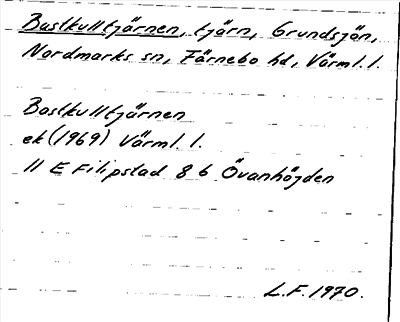 Bastkulltjärnen, tjärn, Grundsjön,
Nordmarks sn, Färnebo hd, Värml. l.
Bastkulltjärnen
ek (1969) Värml. l.
11 E Filipstad 8 b Övanhöjden
L.F. 1970.